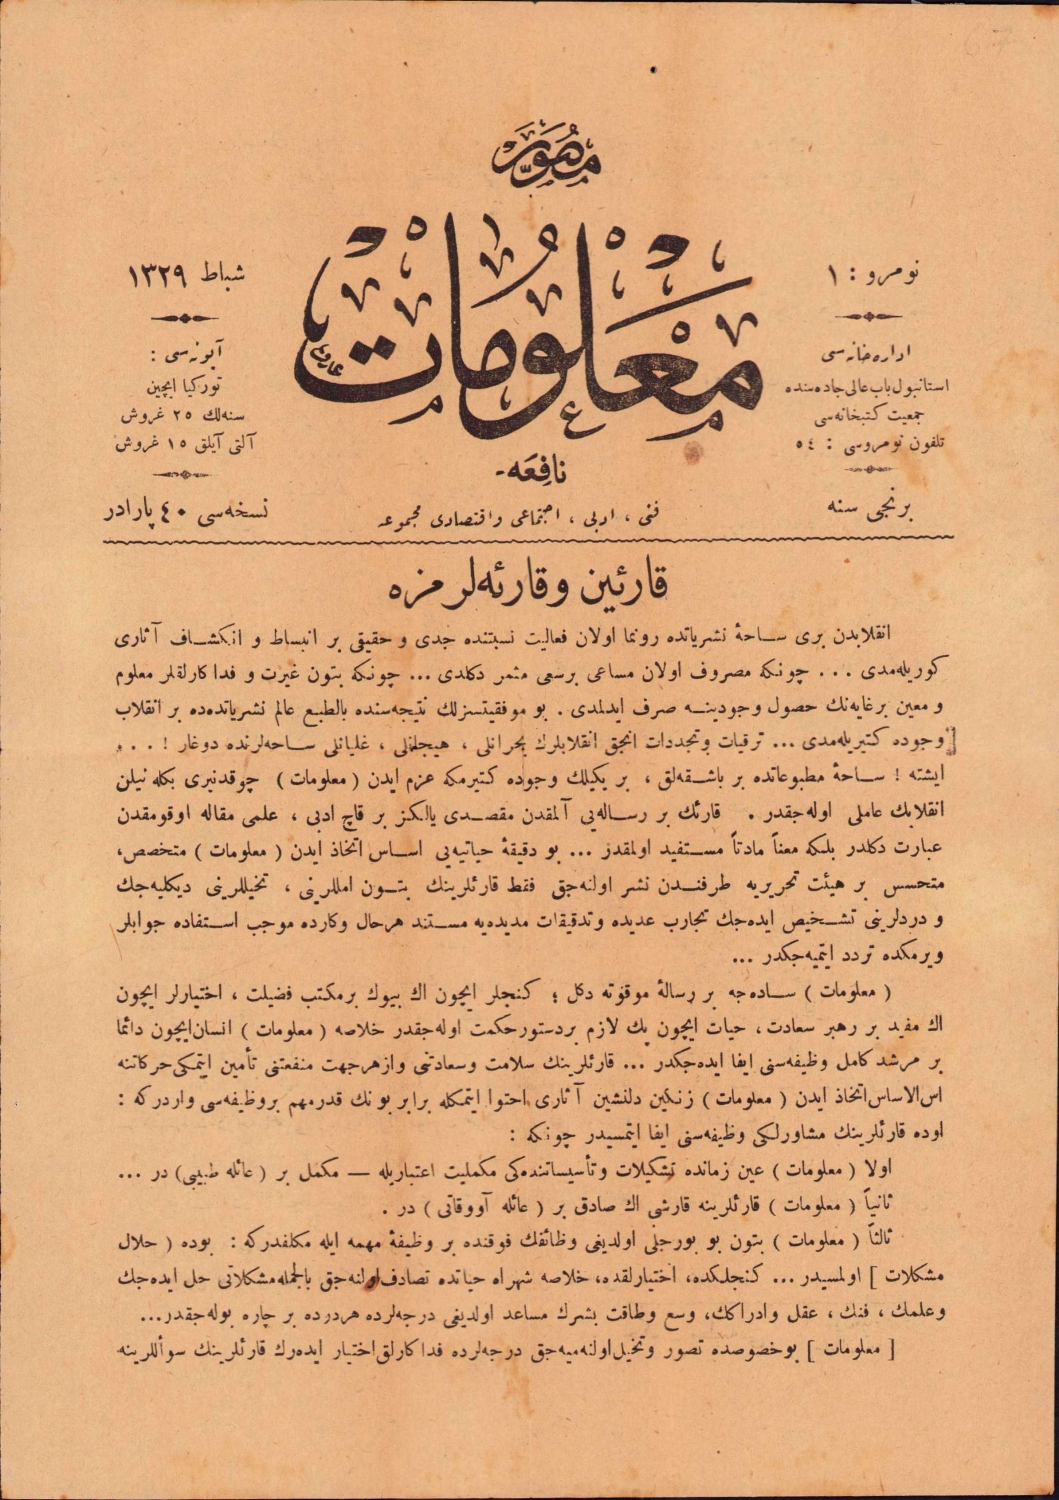 مصور
معلومات
نافعه-
نومرو : ١
اداره خانه سی
استانبول باب عالی جاده سنده
جمعیت کتبخانه سی
تلفون نومروسی : ٥٤
برنجی سنه
شباط ١٣٢٩
آبونه سی :
تورکیا ایچین
سنه لك ٢٥ غروش
آلتی آیلق ١٥ غروش
نسخه سی ٤٠ پارادر
فنی ، ادبی ، اجتماعی واقتصادی مجموعه
قارئین وقارئه لرمزه
انقلابدن بری ساحهٔ نشریاتده رونما اولان فعالیت نسبتنده جدی و حقیقی بر انبساط و انکشاف آثاری
کوریله مدی . . . چونکه مصروف اولان مساعی برسعی مثمر دکلدی ... چونکه بتون غیرت و فداکارلقلر معلوم
و معین برغایه نك حصول وجودینه صرف ایدلمدی . بو موفقیتسزلك نتیجه سنده بالطبع عالم نشریاتده ده بر انقلاب
وجوده کتیریله مدی ... ترقیات وتجددات انجق انقلابلرك بحرانلی ، هیجانلی ، غلیانلی ساحه لرنده دوغار ! . . .
ایشته ! ساحهٔ مطبوعاتده بر باشقه لق ، بر یکیلك وجوده کتیرمکه عزم ایدن (معلومات) چوقدنبری بکله نیلن
انقلابك عاملی اوله جقدر . قارئك بر رساله یی آلمقدن مقصدی یالکز بر قاچ ادبی ، علمی مقاله اوقومقدن
عبارت دکلدر بلکه معناً مادتاً مستفید اولمقدر ... بو دقیقهٔ حیاتیه یی اساس اتخاذ ایدن ( معلومات ) متخصص،
متحسس بر هیئت تحریریه طرفندن نشر اولنه جق فقط قارئلرینك بتون امللرینی ، تخیللرینی دیکلیه جك
و دردلرینی تشخیص ایده جك تجارب عدیده وتدقیقات مدیده یه مستند هرحال وکارده موجب استفاده جوابلر
ویرمکده تردد ایتمیه جکدر ...
( معلومات ) ساده جه بر رسالهٔ موقوته دکل ؛ کنجلر ایچون اك بیوك برمکتب فضیلت ، اختیارلر ایچون
اك مفید بر رهبر سعادت ، حیات ایچون پك لازم بردستورحکمت اوله جقدر خلاصه ( معلومات ) انسان ایچون دائما
بر مرشد کامل وظیفه سنی ایفا ایده جکدر ... قارئلرینك سلامت وسعادتنی وازهرجهت منفعتنی تأمین ایتمکی حرکاتنه
اس الاساس اتخاذ ایدن ( معلومات ) زنکین دلنشین آثاری احتوا ایتمکله برابر بونك قدرمهم بروظیفه سی واردرکه :
اوده قارئلرینك مشاورلکی وظیفه سنی ایفا ایتمسیدر چونکه :
اولا ( معلومات ) عین زمانده تشکیلات وتأسیساتنده کی مکملیت اعتباریله — مکمل بر ( عائله طبیبی) در ...
ثانیاً ( معلومات ) قارئلرینه قارشی اك صادق بر ( عائله آووقاتی ) در .
ثالثاً ( معلومات ) بتون بو بورجلی اولدیغی وظائفك فوقنده بر وظیفهٔ مهمه ایله مکلفدرکه : بوده ( حلال
مشکلات ] اولمسیدر ... کنجلکده، اختیارلقده، خلاصه شهراه حیاتده تصادف اولنه جق بالجمله مشکلاتی حل ایده جك
وعلمك ، فنك ، عقل وادراکك، وسع وطاقت بشرك مساعد اولدیغی درجه لرده هردرده بر چاره بوله جقدر...
[ معلومات ] بوخصوصده تصور وتخیل اولنه میه جق درجه لرده فداکارلق اختیار ایده رك قارئلرینك سوأللرینه